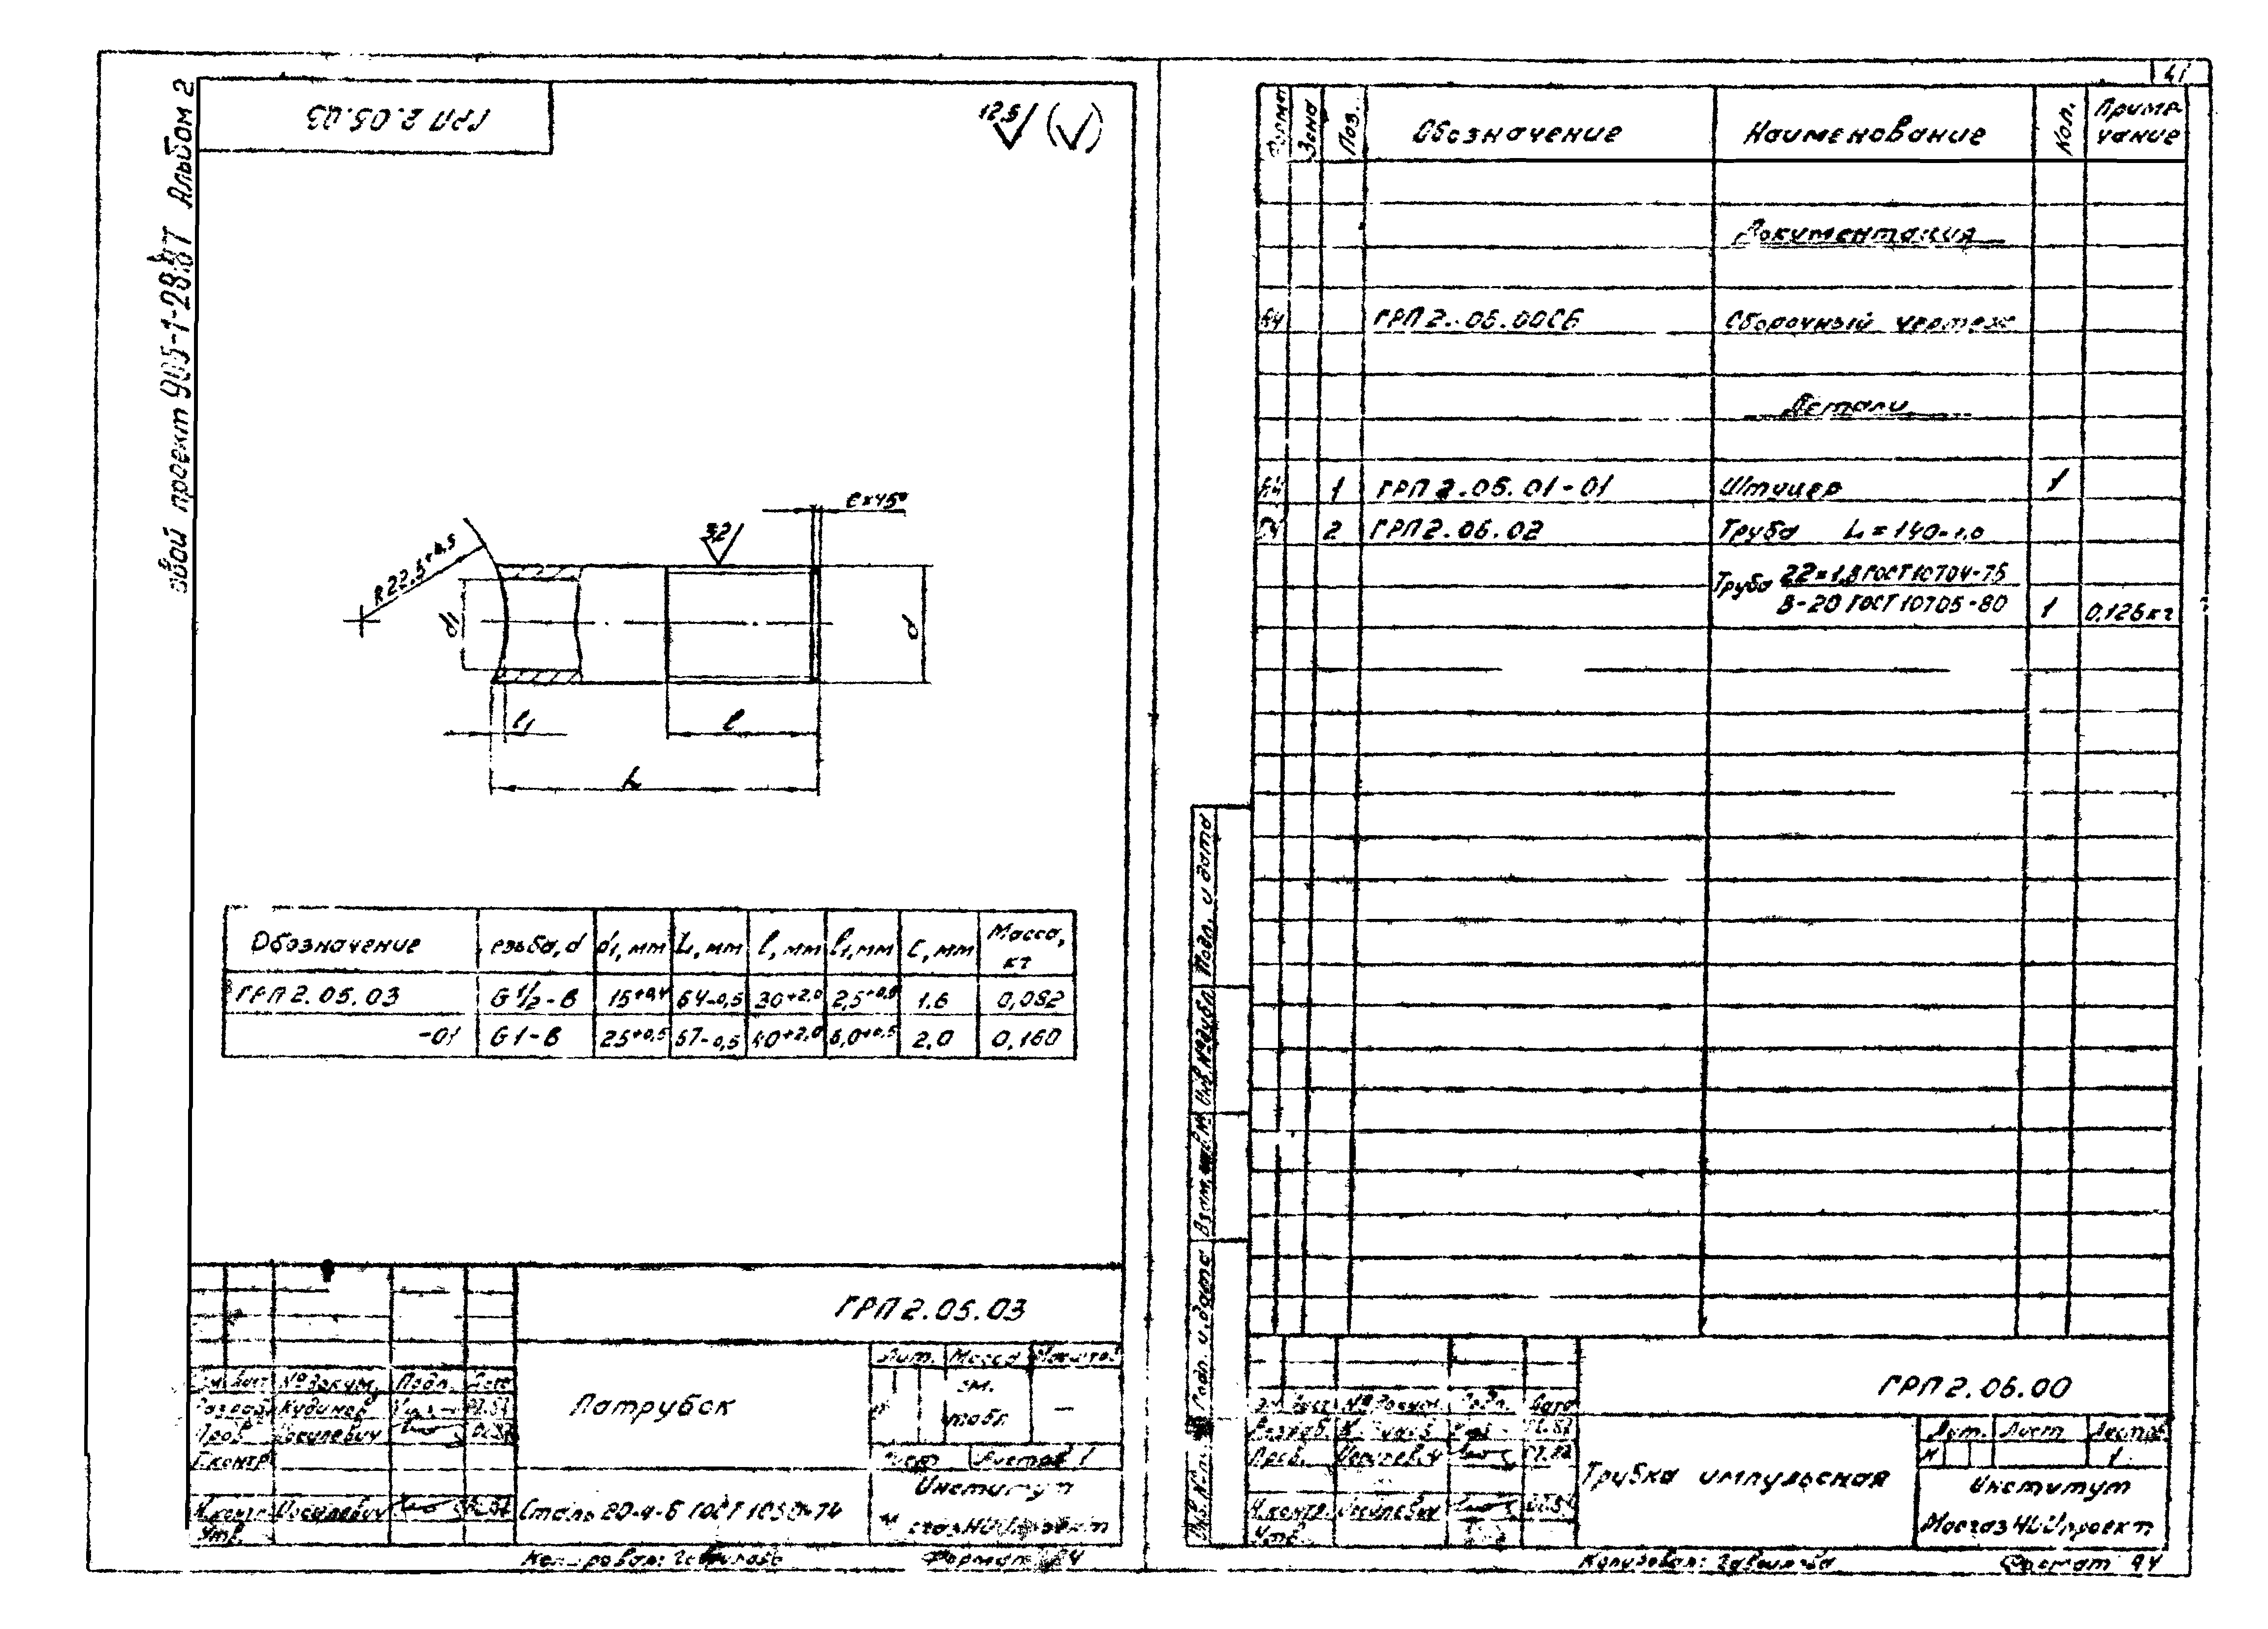 41
Альбом 2
овой проект 905-1-28.87
ГРП 2.05.03
12,5 (√)
c×45°
3,2
R22,5+0,5
d1
d
l1
l
L
Обозначение езьба, d d1, мм L, мм l, мм l1, мм c, мм Масса, кг
ГРП 2.05.03 G 1/2-В 15+0,4 64-0,5 30+2,0 2,5+0,5 1.6 0,082
-01 G1-В 25+0,5 67-0,5 40+2,0 6,0+0,5 2,0 0,160
ГРП 2.05.03
Лит. Масса Масштаб
Лист № докум. Подп. Дата
Разраб. Кудинов
Пров.
Т.контр.
Н.контр.
Утв.
Патрубок
см.
табл.
—
Лист Листов 1
Сталь 20-4-Б ГОСТ 1050-74
Институт
МосгазНИИпроект
Копировал: Гаврилова Формат А4
Формат Зона Поз. Обозначение Наименование Кол. Примечание
Документация
А4 ГРП 2.06.00СБ Сборочный чертеж
Детали
А4 1 ГРП 2.05.01-01 Штуцер 1
БЧ 2 ГРП 2.06.02 Труба L=140-1,0
Труба 22×1,8 ГОСТ 10704-76
В-20 ГОСТ 10705-80 1 0,126кг
Подп. и дата
Инв. № дубл.
Взам. инв. №
Подп. и дата
Инв. № подл.
ГРП 2.06.00
Лист № докум. Подп. Дата
Разраб.
Пров.
Н.контр.
Утв.
Трубка импульсная
Лит. Лист Листов
И 1
Институт
МосгазНИИпроект
Копировал: Гаврилова Формат А4